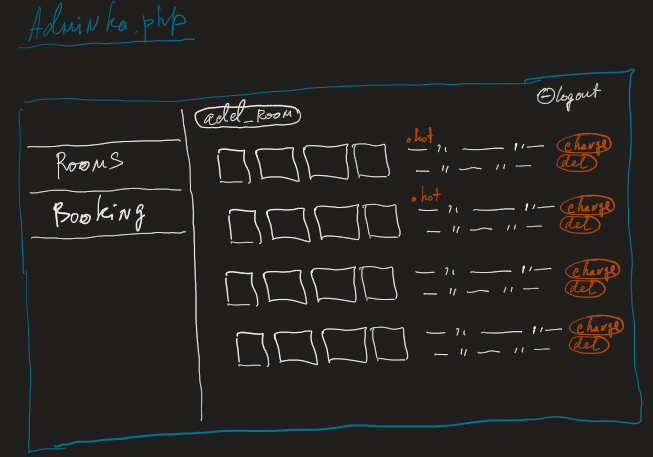 Adminka.php
logout
add_room
Rooms
Booking
.hot
— " — " — change
— " — — " — del
.hot
— " — " — change
— " — — " — del
— " — " — change
— " — — " — del
— " — " — change
— " — — " — del